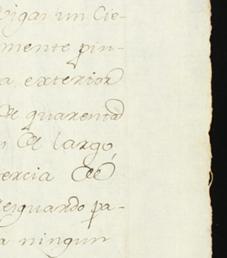 vigas un Cie-
mente pin-
a exterior
de quarenta
de largo,
ercia de
resguardo pa-
a ningun